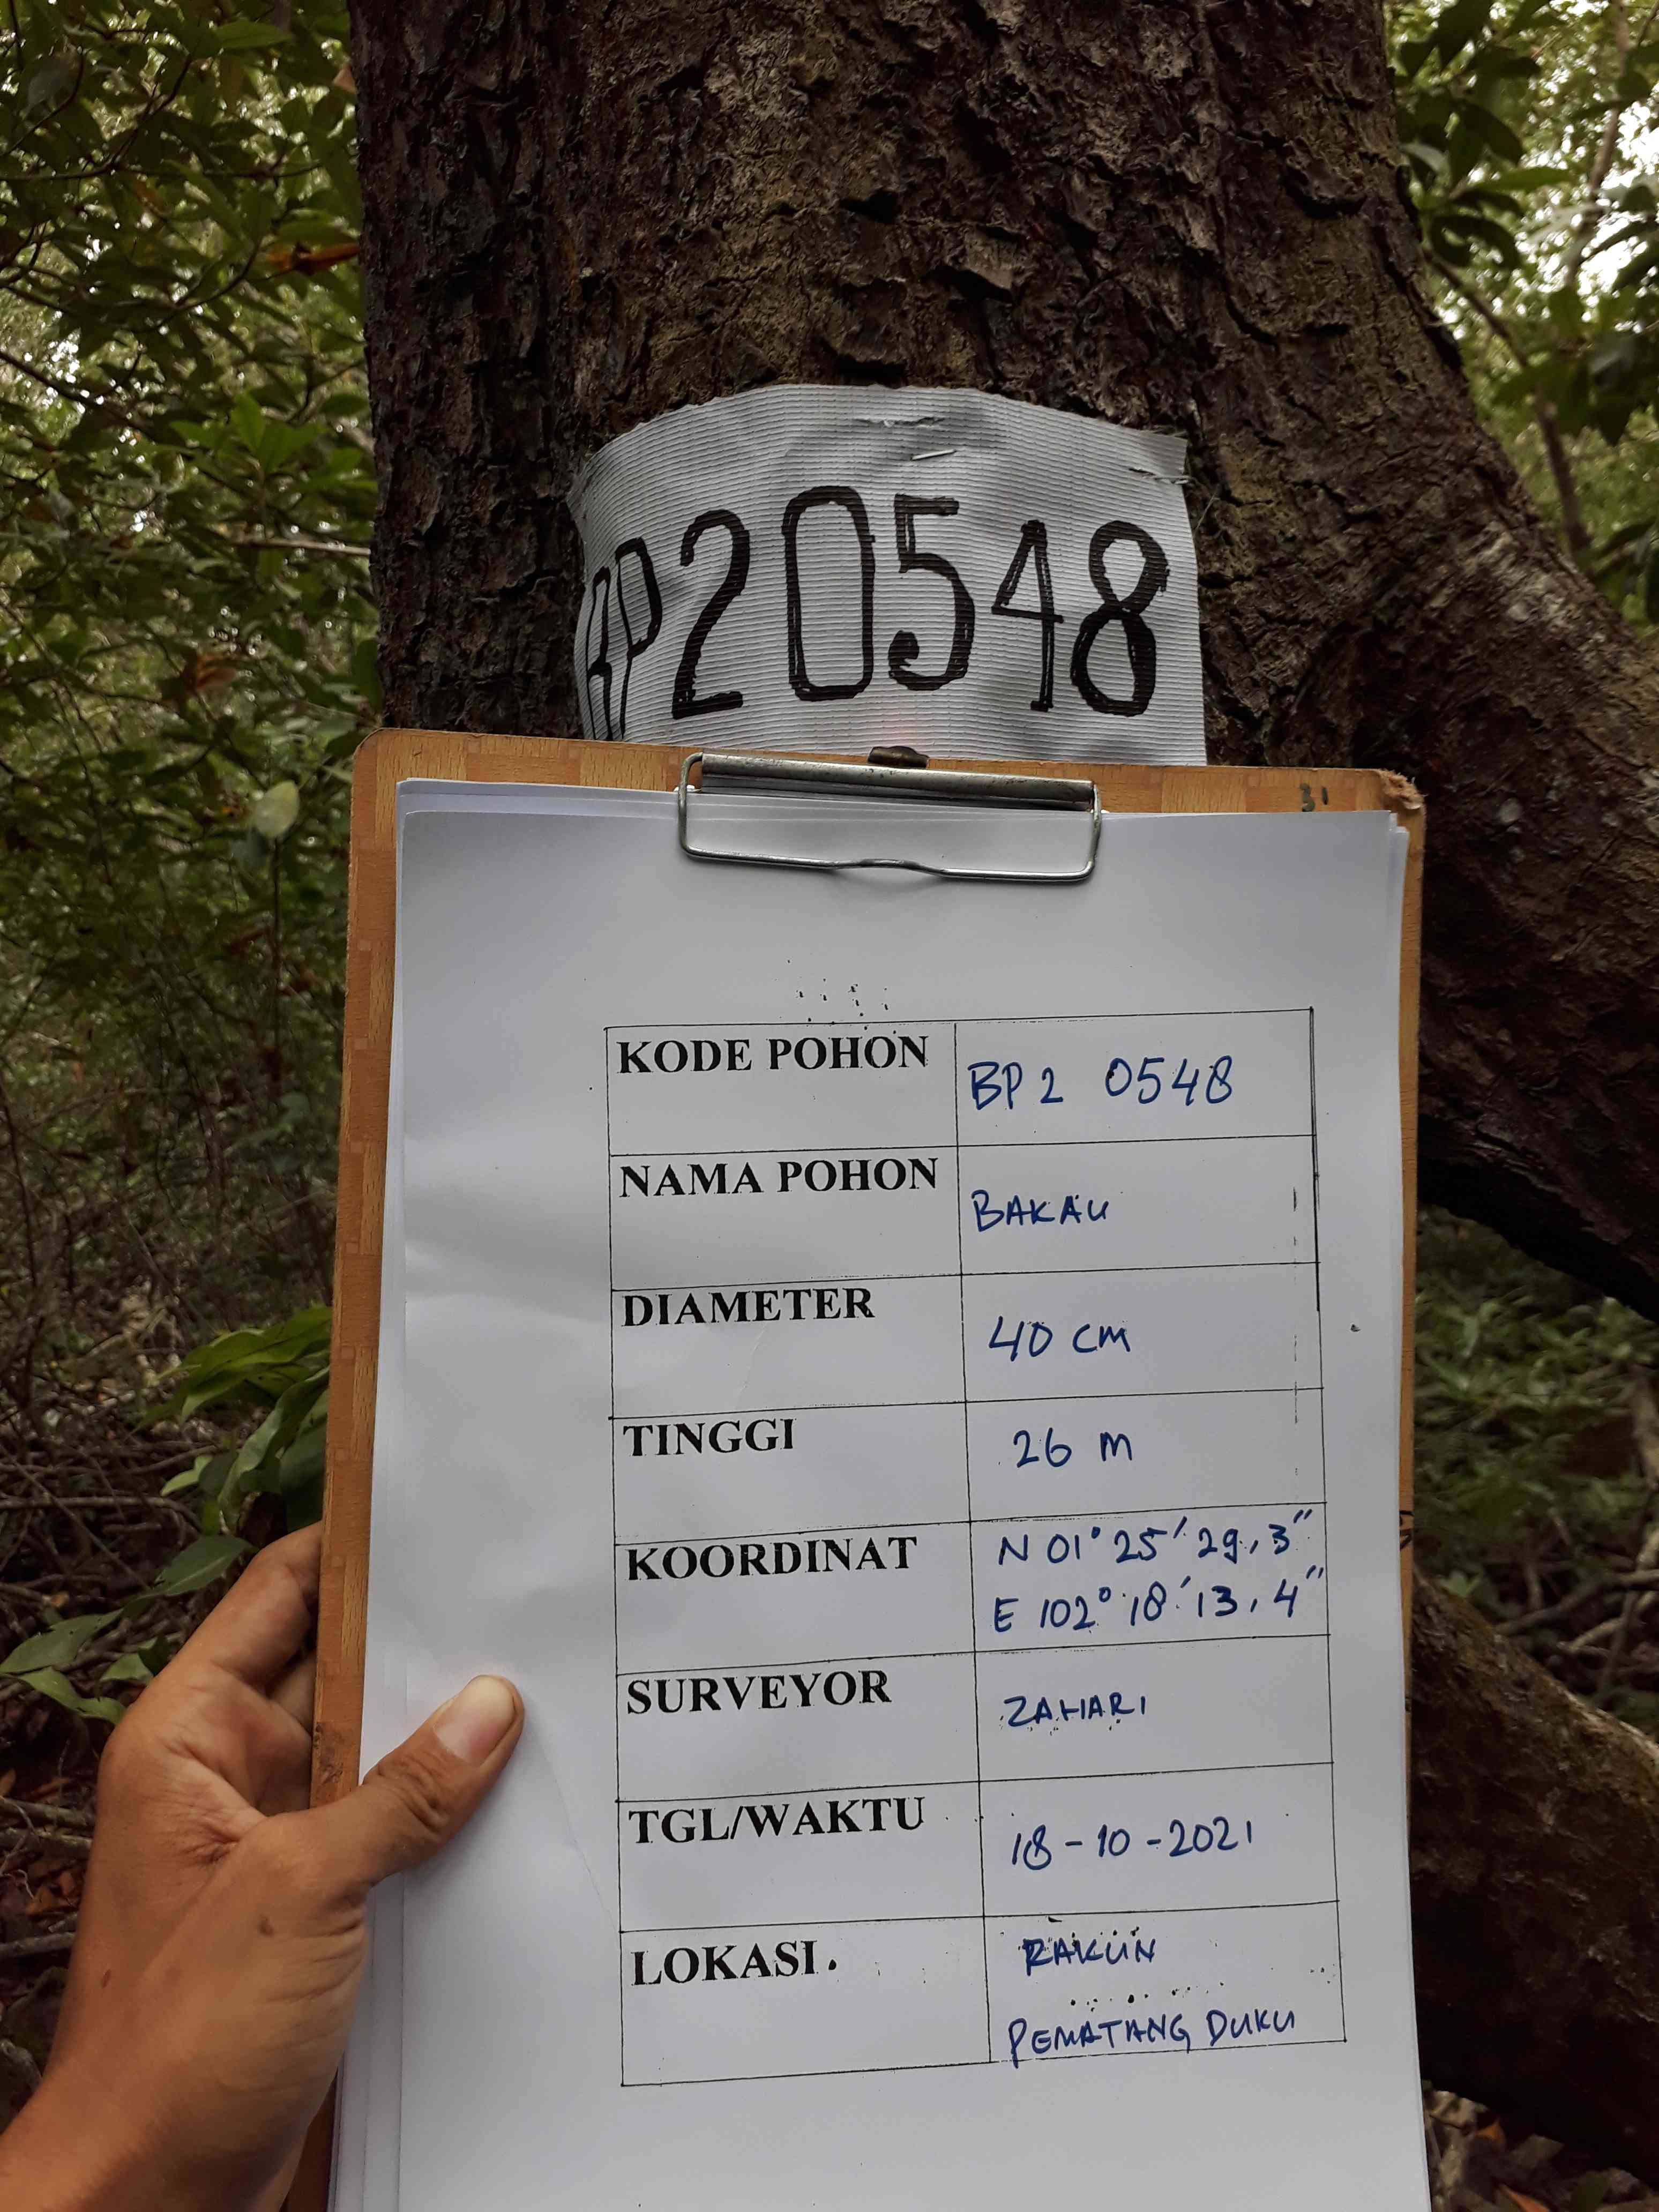 BP20548
KODE POHON BP2 0548
NAMA POHON BAKAU
DIAMETER 40 cm
TINGGI 26 m
KOORDINAT N 01° 25' 29,3"
E 102° 18' 13,4"
SURVEYOR ZAHARI
TGL/WAKTU 18-10-2021
LOKASI. RAKUN
PEMATANG DUKU